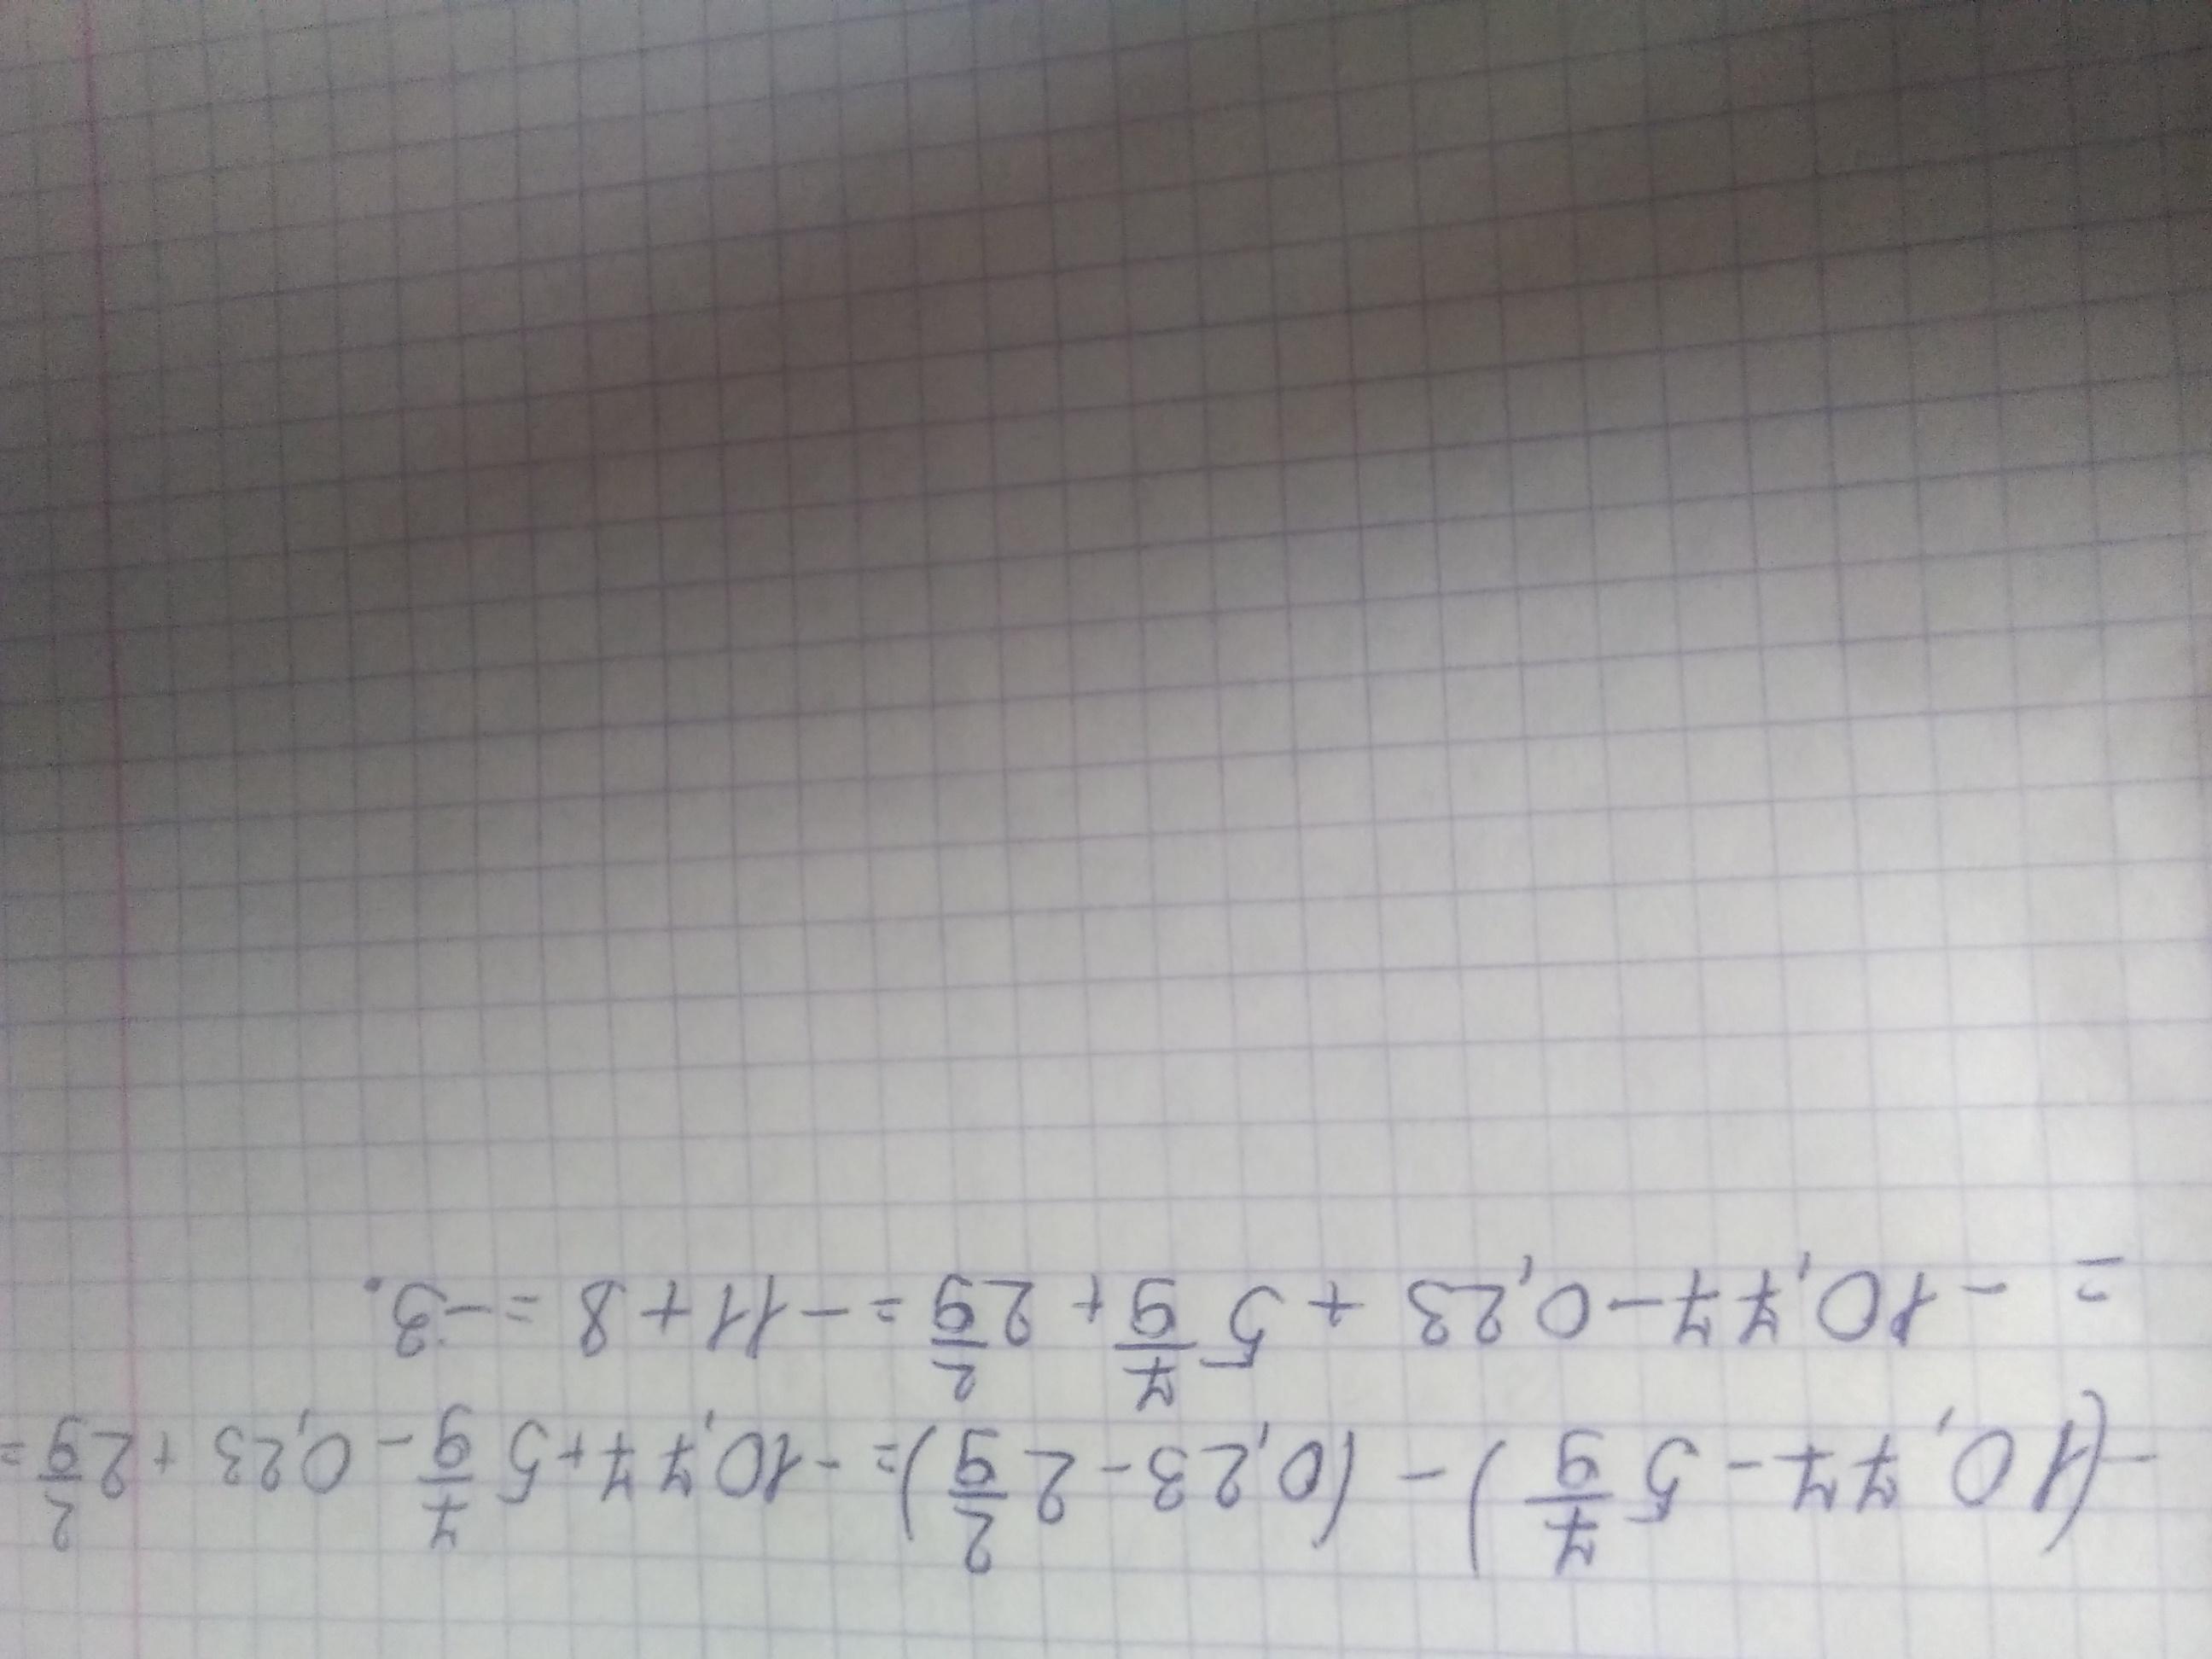 -(10,77 - 5 7/9) - (0,23 - 2 2/9) = -10,77 + 5 7/9 - 0,23 + 2 2/9 =
= -10,77 - 0,23 + 5 7/9 + 2 2/9 = -11 + 8 = -3.